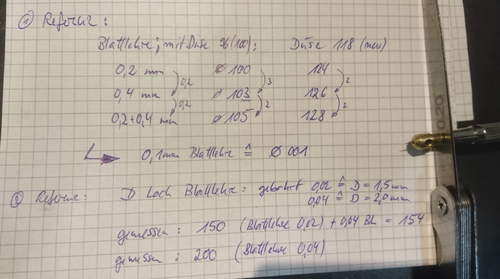 ① Referenz:
Blattlehre; mit Düse 96 (100): Düse 118 (neu)
0,2 mm ⌀ 100 124
0,2 3 2
0,4 mm ⌀ 103 126
0,2 2 2
0,2+0,4 mm ⌀ 105 128
↳ 0,1mm Blattlehre ≙ ⌀ 001
② Referenz: D Loch Blattlehre: gebohrt 0,02 ≙ D = 1,5mm
0,04 ≙ D = 2,0mm
gemessen: 150 (Blattlehre 0,02) + 0,04 Bl = 154
gemessen: 200 (Blattlehre 0,04)